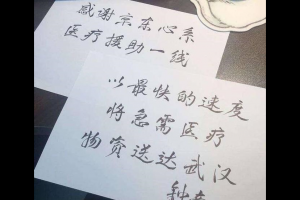 感谢京东心系
医疗援助一线
以最快的速度
将急需医疗
物资送达武汉
钟南